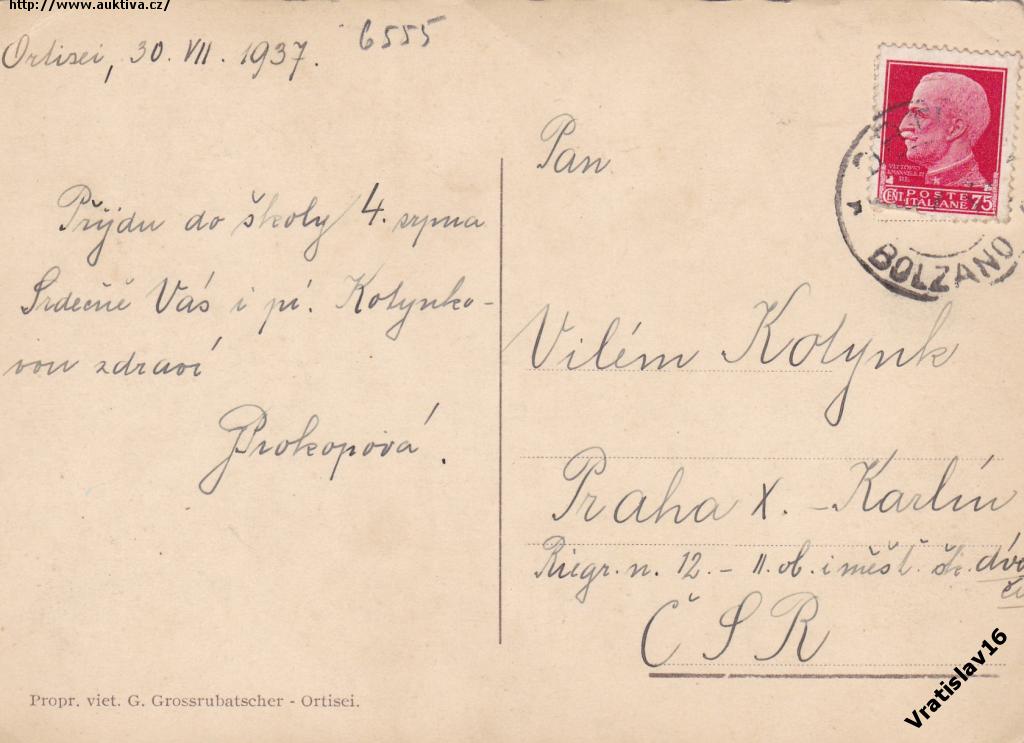 http://www.auktiva.cz/
Ortisei, 30. VII. 1937.
6555
Přijdu do školy 4. srpna
Srdečně Vás i pí. Kotynko-
vou zdraví
Prokopová.
Pan
Vilém Kotynk
Praha X. - Karlín
Riegr. n. 12. - II. ob. i měšť. šk. dív
ČSR
VITTORIO
EMANUELE III
RE
POSTE
ITALIANE
CENT 75
BOLZANO
Propr. viet. G. Grossrubatscher - Ortisei.
Vratislav16